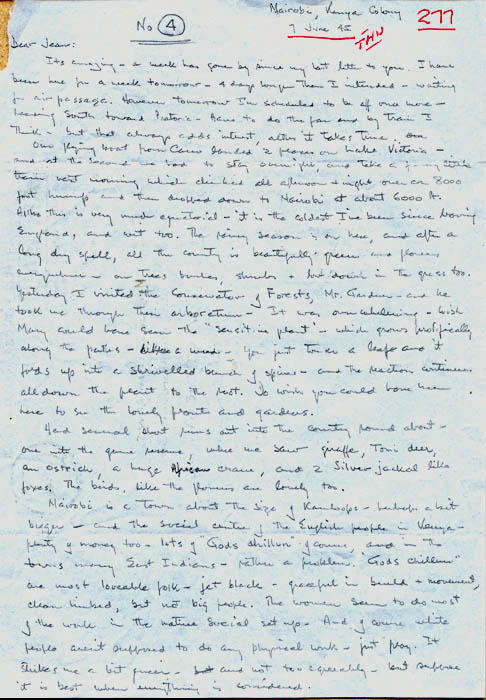 Nairobi, Kenya Colony
277
No 4
7 June 45
Dear Jean:
Its amazing - a week has gone by since my last letter to you. I have
been here for a week tomorrow - 4 days longer than I intended - waiting
for air passage. However tomorrow I'm scheduled to be off once more -
heading South toward Pretoria - Have to do the far end by train I
think - but that always adds interest, altho it takes time.
Our flying boat from Cairo landed 2 places on Lake Victoria -
and at the second we had to stay overnight, and take a funny little
train next morning which climbed all afternoon & night over an 8000
foot hump and then dropped down to Nairobi at about 6000 ft.
Altho this is very much equatorial - it is the coldest I've been since leaving
England, and wet too. The rainy season is on here, and after a
long dry spell, all the country is beautifully green and flowers
everywhere - on trees bushes, shrubs & but down in the grass too.
Yesterday I visited the Conservator of Forests, Mr. Gardner - and he
took me through their arboretum - It was overwhelming - wish
Mary could have seen the "sensitive plant" - which grows prolifically
along the paths - like a weed - You just touch a leaf and it
folds up into a shrivelled bunch of spines - and the reaction continues
all down the plant to the root. Do wish you could have been
here to see the lovely fruits and gardens.
Had several short runs out into the country round about -
one into the game reserve, where we saw giraffe, Tomi deer,
an ostrich, a huge African crane, and 2 Silver jackal like
foxes. The birds, like the flowers are lovely too.
Nairobi is a town about the size of Kamloops - perhaps a bit
bigger - and the social centre of the English people in Kenya -
plenty of money too - lots of "Gods chillun" of course, and in the
towns many East Indians - rather a problem. "Gods chillun"
are most loveable folk - jet black - graceful in build & movement,
clean limbed, but not big people. The women seem to do most
of the work in the native social set up - And of course white
people aren't supposed to do any physical work - just play. It
strikes me a bit queer - and not too agreeably - but suppose
it is best when everything is considered.